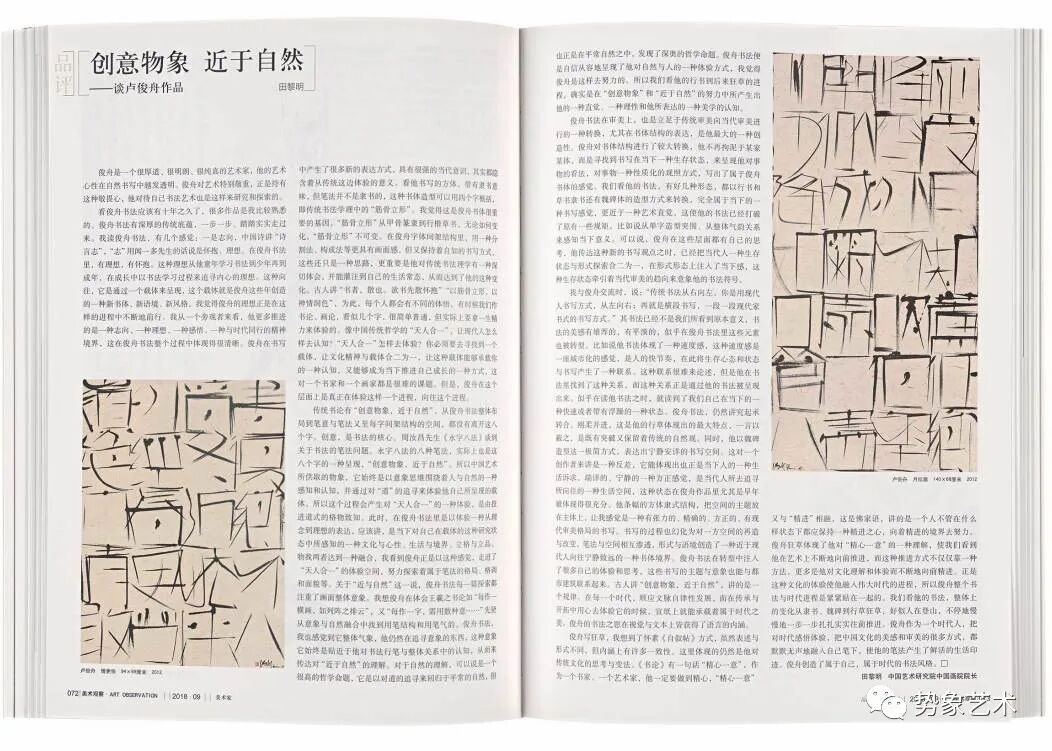 品评
创意物象 近于自然
——谈卢俊舟作品
田黎明
俊舟是一个很厚道、很明朗、很纯真的艺术家，他的艺术
心性在自然书写中越发透明。俊舟对艺术特别敬重，正是持有
这种敬畏心，他对待自己书法艺术也是这样来研究和探索的。
看俊舟书法应该有十年之久了，很多作品是我比较熟悉
的。俊舟书法有深厚的传统底蕴，一步一步、踏踏实实走过
来。我读俊舟书法，有几个感觉：一是志向，中国诗讲“诗
言志”，“志”用闻一多先生的话说是怀抱、理想。在俊舟书法
里，有理想，有怀抱。这种理想从他童年学习书法到少年再到
成年，在成长中以书法学习过程来追寻内心的理想。这种向
往，它是通过一个载体来呈现，这个载体就是俊舟这些年创造
的一种新书体、新语境、新风格。我觉得俊舟的理想正是在这
样的进程中不断地前行。我从一个旁观者来看，他更多推进
的是一种志向、一种理想、一种感悟、一种与时代同行的精神
境界，这在俊舟书法整个过程中体现得很清晰。俊舟在书写
卢俊舟 情景他 94×69厘米 2012
072 美术观察·ART OBSERVATION | 2018·09 | 美术家
中产生了很多新的表达方式，具有很强的当代意识，其实都隐
含着从传统这边体验的意义。看他书写的方体，带有隶书意
味，但笔法并不是隶书的，这种书体造型可以用四个字概括，
即传统书法学理中的“筋骨立形”。我觉得这是俊舟书体很重
要的基因。“筋骨立形”从甲骨篆隶到行楷草书，无论如何变
化，“筋骨立形”不可变。在俊舟字体间架结构里，用一种分
割法、构成法等更具有画面感，但又保持着自如的书写方式，
这些还只是一种思路，更重要是他对传统书法理字有一种深
切体会，并能灌注到自己的生活常态，从而达到了他的这种变
化。古人讲“书者，散也。欲书先散怀抱”“以筋骨立形，以
神情润色”，为此，每个人都会有不同的体悟。有时候我们作
书论、画论，看似几个字，很简单普通，但实际上要拿一生精
力来体验的。像中国传统哲学的“天人合一”，让现代人怎么
样去认知？“天人合一”怎样去体验？你必须要去寻找到一个
载体，让文化精神与载体合二为一，让这种载体能够承载你
的一种认知，又能够成为当下推进自己成长的一种方式，这
对一个书家和一个画家都是很难的课题。但是，俊舟在这个
层面上是真正在体验这样一个进程，向往这个进程。
传统书论有“创意物象、近于自然”，从俊舟书法整体布
局到笔意与笔法又至每字间架结构的空间，都没有离开这八
个字。创意，是书法的核心。周汝昌先生《永字八法》谈到
关于书法的笔法问题。永字八法的八种笔法，实际上也是这
八个字的一种呈现，“创意物象、近于自然”。所以中国艺术
所供取的物象，它始终是以意象思维围绕着人与自然的一种
感知和认知，并通过对“道”的追寻来体验他自己所呈现的载
体，所以这个过程会产生对“天人合一”的一种体验，是由推
进递式的格物致知。此时，在俊舟书法里是以体验一种从理
念到理想的表达，应该讲，是当下对自己在载体的这种研究状
态中所感知的一种文化与心性、生活与境界、立格与立品、
物我两者达到一种融合。我看到俊舟正是以这种感觉，走进了
“天人合一”的体验空间，努力探索着属于笔法的格局、格调
和面貌等。关于“近与自然”这一说，俊舟书法每一篇探索都
注重了画面整体意象。我想俊舟在体会王羲之书论如“每作一
横画，如列阵之排云”，又“每作一字，需用数种意……”先使
从意象与自然融合中找到用笔结构和用笔气韵。俊舟书法，
我也感觉到它整体气象，他仍然在追寻意象的东西，这种意象
它始终是贴近于他对书法行笔与整体关系中的认知，从而来
传达对“近于自然”的理解。对于自然的理解，可以说是一个
很高的哲学命题，它是以对道的追寻来回归于平常的自然，但
也正是在平常自然之中，发现了深奥的哲学命题。俊舟书法便
是自信从容地呈现了他对自然与人的一种体验方式，我觉得
俊舟是这样去努力的。所以我们看他的行书到后来狂草的进
程，确实是在“创意物象”和“近于自然”的努力中所产生出
他的一种直觉、一种理性和他所表达的一种美学的认知。
俊舟书法在审美上，也是立足于传统审美向当代审美进
行的一种转换，尤其在书体结构的表达，是他最大的一种创
造性。俊舟对书体结构进行了较大转换，他不再拘泥于某家
某体，而是寻找到书写在当下一种生存状态，来呈现他对事
物的看法，对事物一种性质化的观照方式，写出了属于俊舟
书体的感觉。我们看他的书法，有好几种形态，都以行书和
草书隶书还有魏碑体的造型方式来转换，完全属于当下的一
种书写感觉，更近于一种艺术直觉，这使他的书法已经打破
了原有一些规矩，比如说从单字造型突围，从整体气韵关系
来感知当下意义。可以说，俊舟在这些层面都有自己的思
考，他传达这种新的书写观点之时，已经把当代人一种生存
状态与形式探索合二为一，在形式形态上注入了当下感，这
种生存状态牵引着当代审美的趋向来意象他的书法符号。
我与俊舟交流时，说：“传统书法从右向左，你是用现代
人书写方式，从左向右；再就是横段书写，一段一段现代家
书式的书写方式。”其书法已经不是我们所看到原本意义，书
法的美感有雄厚的，有平淡的，似乎在俊舟书法里这些元素
也被转型。比如说他书法体现了一种速度感，这种速度感是
一座城市化的感觉，是人的快节奏，在此将生存心态和状态
与书写产生了一种联系。这种联系很难来论述，但是他在书
法里找到了这种关系，而这种关系正是通过他的书法被呈现
出来。似乎在读他书法之时，就读到了我们自己在当下的一
种快速或者带有浮躁的一种状态。俊舟书法，仍然讲究起承
转合、刚柔并进，这是他的行草体现出的最大特点，一言以
蔽之，是既有突破又保留着传统的自然观。同时，他以魏碑
造型这一极简方式，表达出宁静安详的书写空间。这对一个
创作者来讲是一种反差，它能体现出也正是当下人的一种生
活诉求。端详的、宁静的一种为正感觉，是当代人所去追寻
所向往的一种生活空间，这种状态在俊舟作品里尤其是早年
载体现得很充分。他条幅的方体隶式结构，把空间的主题放
在主体上，让我感觉是一种有张力的、精确的、方正的、有现
代审美格局的书写。书写的过程也幻化为对一方空间的再造
与改变，笔法与空间相互渗透，形式与语境创造了一种近于现
代人向往宁静致远的一种书体境界。俊舟书法在转型中注入
了极多自己的体验和思考，这些书写的主题与意象也能与都
市建筑联系起来。古人讲“创意物象、近于自然”，讲的是一
个规律，在每一个时代，顺应文脉自律性发展，而在传承与
开拓中用心去体验它的时候，宣纸上就能承载着属于时代之
美，俊舟的书法之思在视觉与文本上皆获得了语言的内涵。
俊舟写狂草，我想到了怀素《自叙帖》方式，虽然表述与
形式不同，但内涵上有许多一致性。这里体现的仍然是他对
传统文化的思考与变法。《书论》有一句话“精心一意”，作
为一个书家，一个艺术家，他一定要做到精心，“精心一意”
卢俊舟 月似眉 140×69厘米 2012
又与“精进”相融，这是佛家语，讲的是一个人不管在什么
样状态下都应保持一种精进之心，向着精进的境界去努力。
俊舟狂草体现了他对“精心一意”的一种理解，使我们看到
他在艺术上不断地向前推进，而这种推进方式不仅仅靠一种
方法，更多是他对文化理解和体验而不断地向前精进，正是
这种文化的体验使他融入伟大时代的进程，所以俊舟整个书
法与时代进程是紧紧贴在一起的。我们看他的书法，整体上
的变化从隶书、魏碑到行草狂草，好似人在登山，不停地慢
慢地一步步扎扎实实往前推进。俊舟作为一个时代人，把
对时代感悟体验，把中国文化的美感和审美的很多方式，都
默默无声地融入自己笔下，使他的笔法产生了鲜活的生活印
迹。俊舟创造了属于自己，属于时代的书法风格。□
田黎明 中国艺术研究院中国画院院长
势象艺术